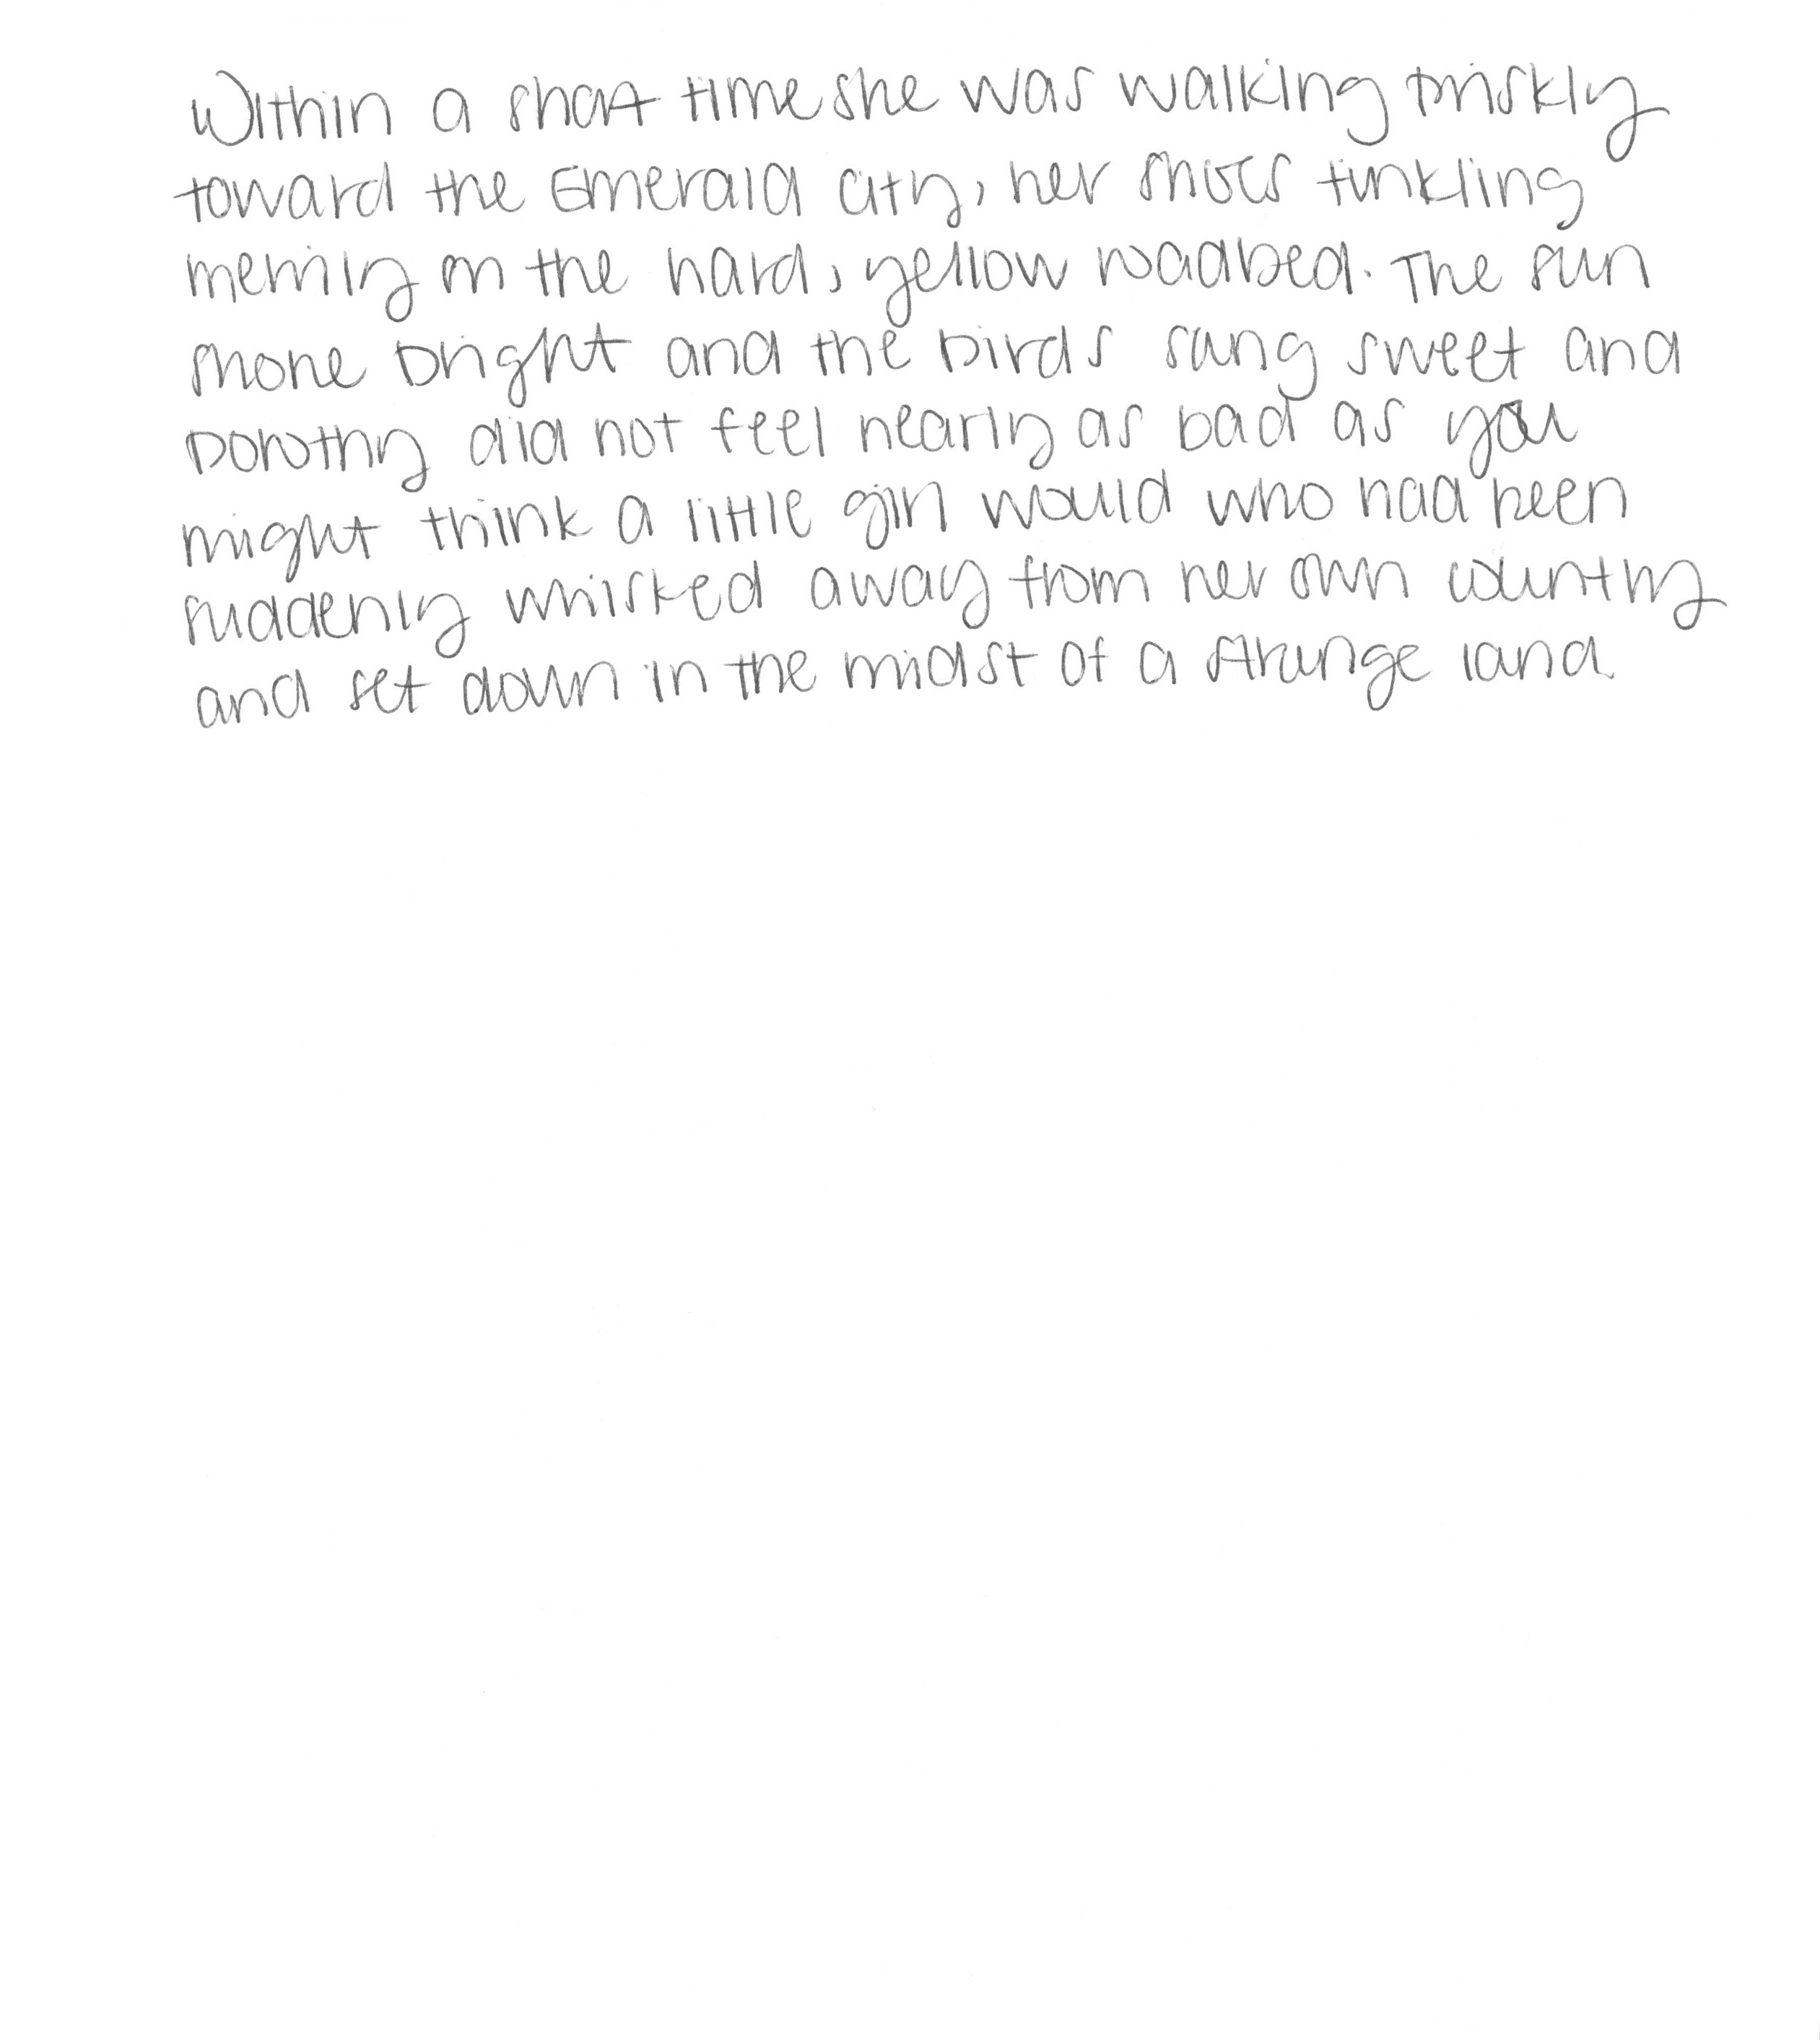 Within a short time she was walking briskly
toward the Emerald City, her shoes tinkling
merrily on the hard, yellow roadbed. The sun
shone bright and the birds sang sweet and
Dorothy did not feel nearly as bad as you
might think a little girl would who had been
suddenly whisked away from her own country
and set down in the midst of a strange land.